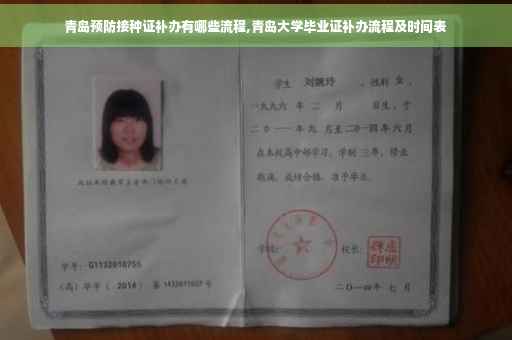 青岛预防接种证补办有哪些流程,青岛大学毕业证补办流程及时间表
学生 刘婉玲 ，性别 女 ，
一九九六 年 二 月 日生，于
二〇一一年 九 月至二〇一四年 六 月
在本校高中部学习，学制 三年，修业
期满，成绩合格，准予毕业。
学号： G1132010755
(高) 毕字 ( 2014 ) 第 1432011027 号
学校：
校长：
二〇一四年 七 月